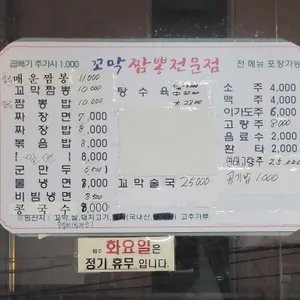 곱배기 추가시 1.000
꼬막 짬뽕전문점
전 메뉴 포장가능
매운짬뽕 11,000
꼬막짬뽕 10,000
짬뽕밥 10,000
짜장면 7,000
짜장밥 8,000
볶음밥 8,000
8,000
군만두 6,500
물냉면 8,000
비빔냉면 8,500
콩국수 8,000
탕수육
大 28,000
꼬막술국 25,000
소주 4,000
맥주 4,000
이가도주 6,000
고량주 8,000
음료수 2,000
환타 2,000
연태고량주 25,000
공기밥 1000
꼬막,쌀,돼지고기,
(국내산
고추가루
매주 화요일은
정기 휴무 입니다.